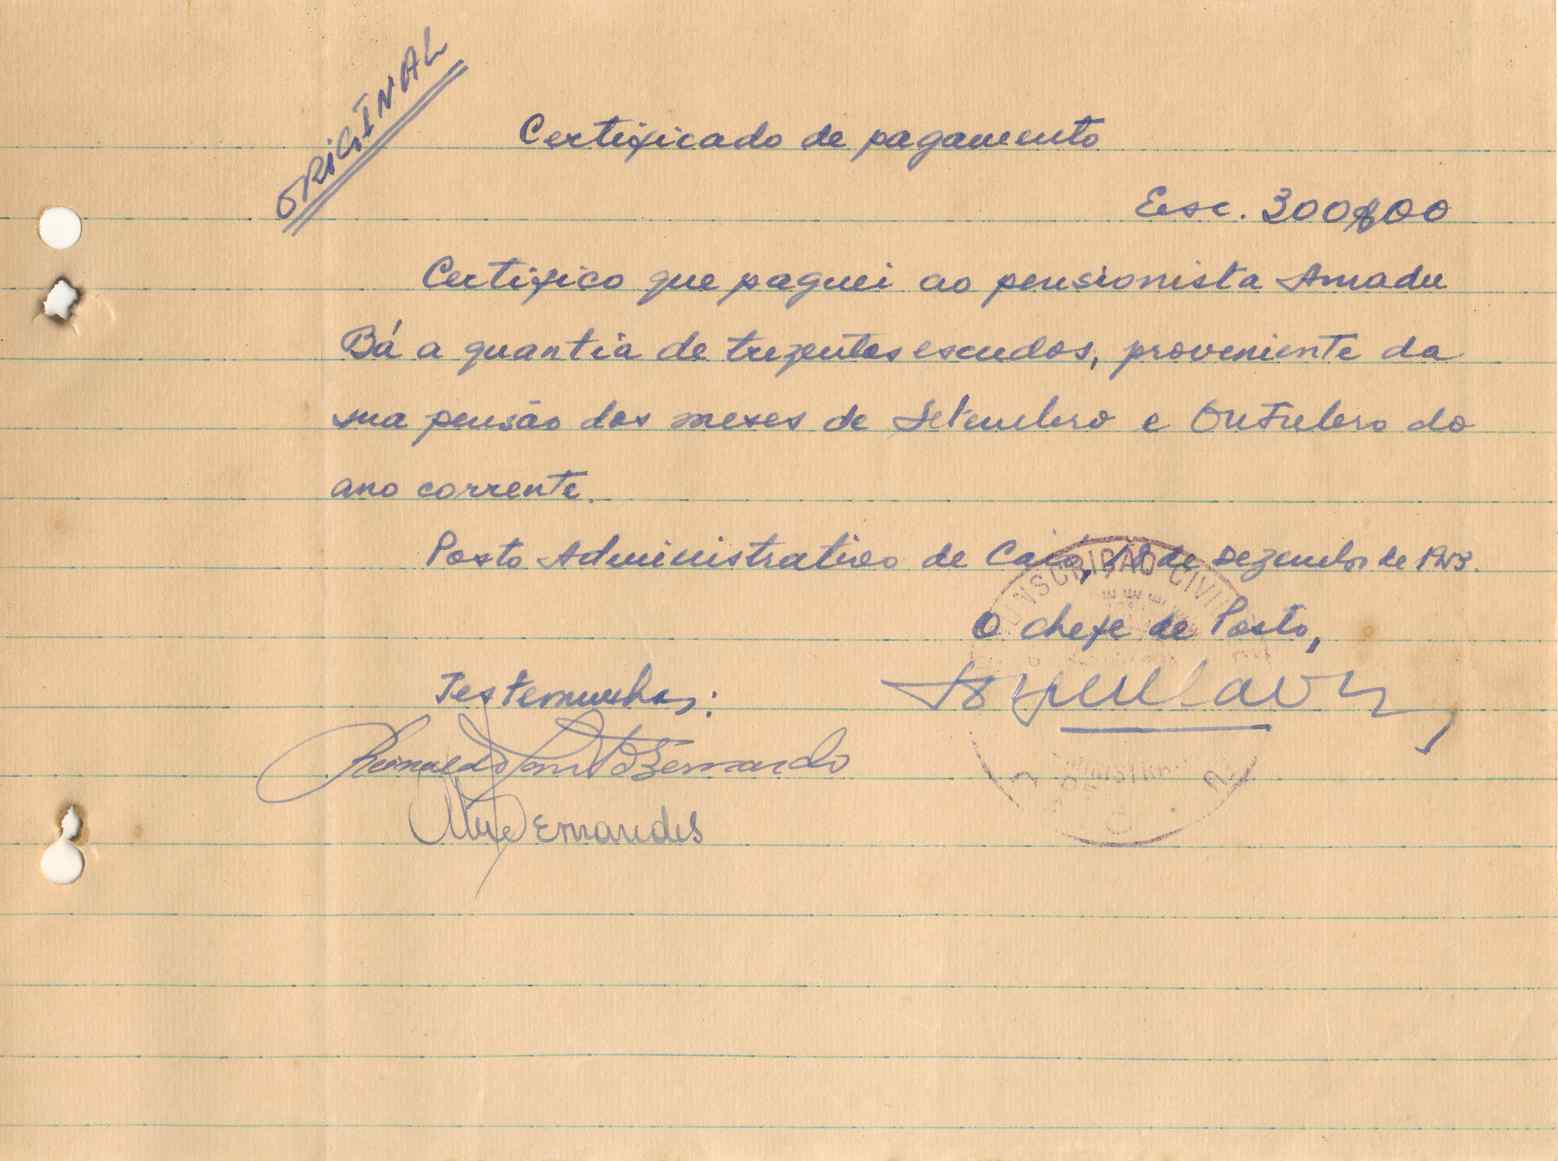 ORIGINAL
Certificado de pagamento
Esc. 300$00
Certifico que paguei ao pensionista Amadu
Bá a quantia de trezentos escudos, proveniente da
sua pensão dos meses de Setembro e Outubro do
ano corrente.
Posto Administrativo de Caió, de Dezembro de
CIRCUNSCRIÇÃO CIVIL
O chefe de Posto,
Testemunhas:
Bernardo
Fernandes